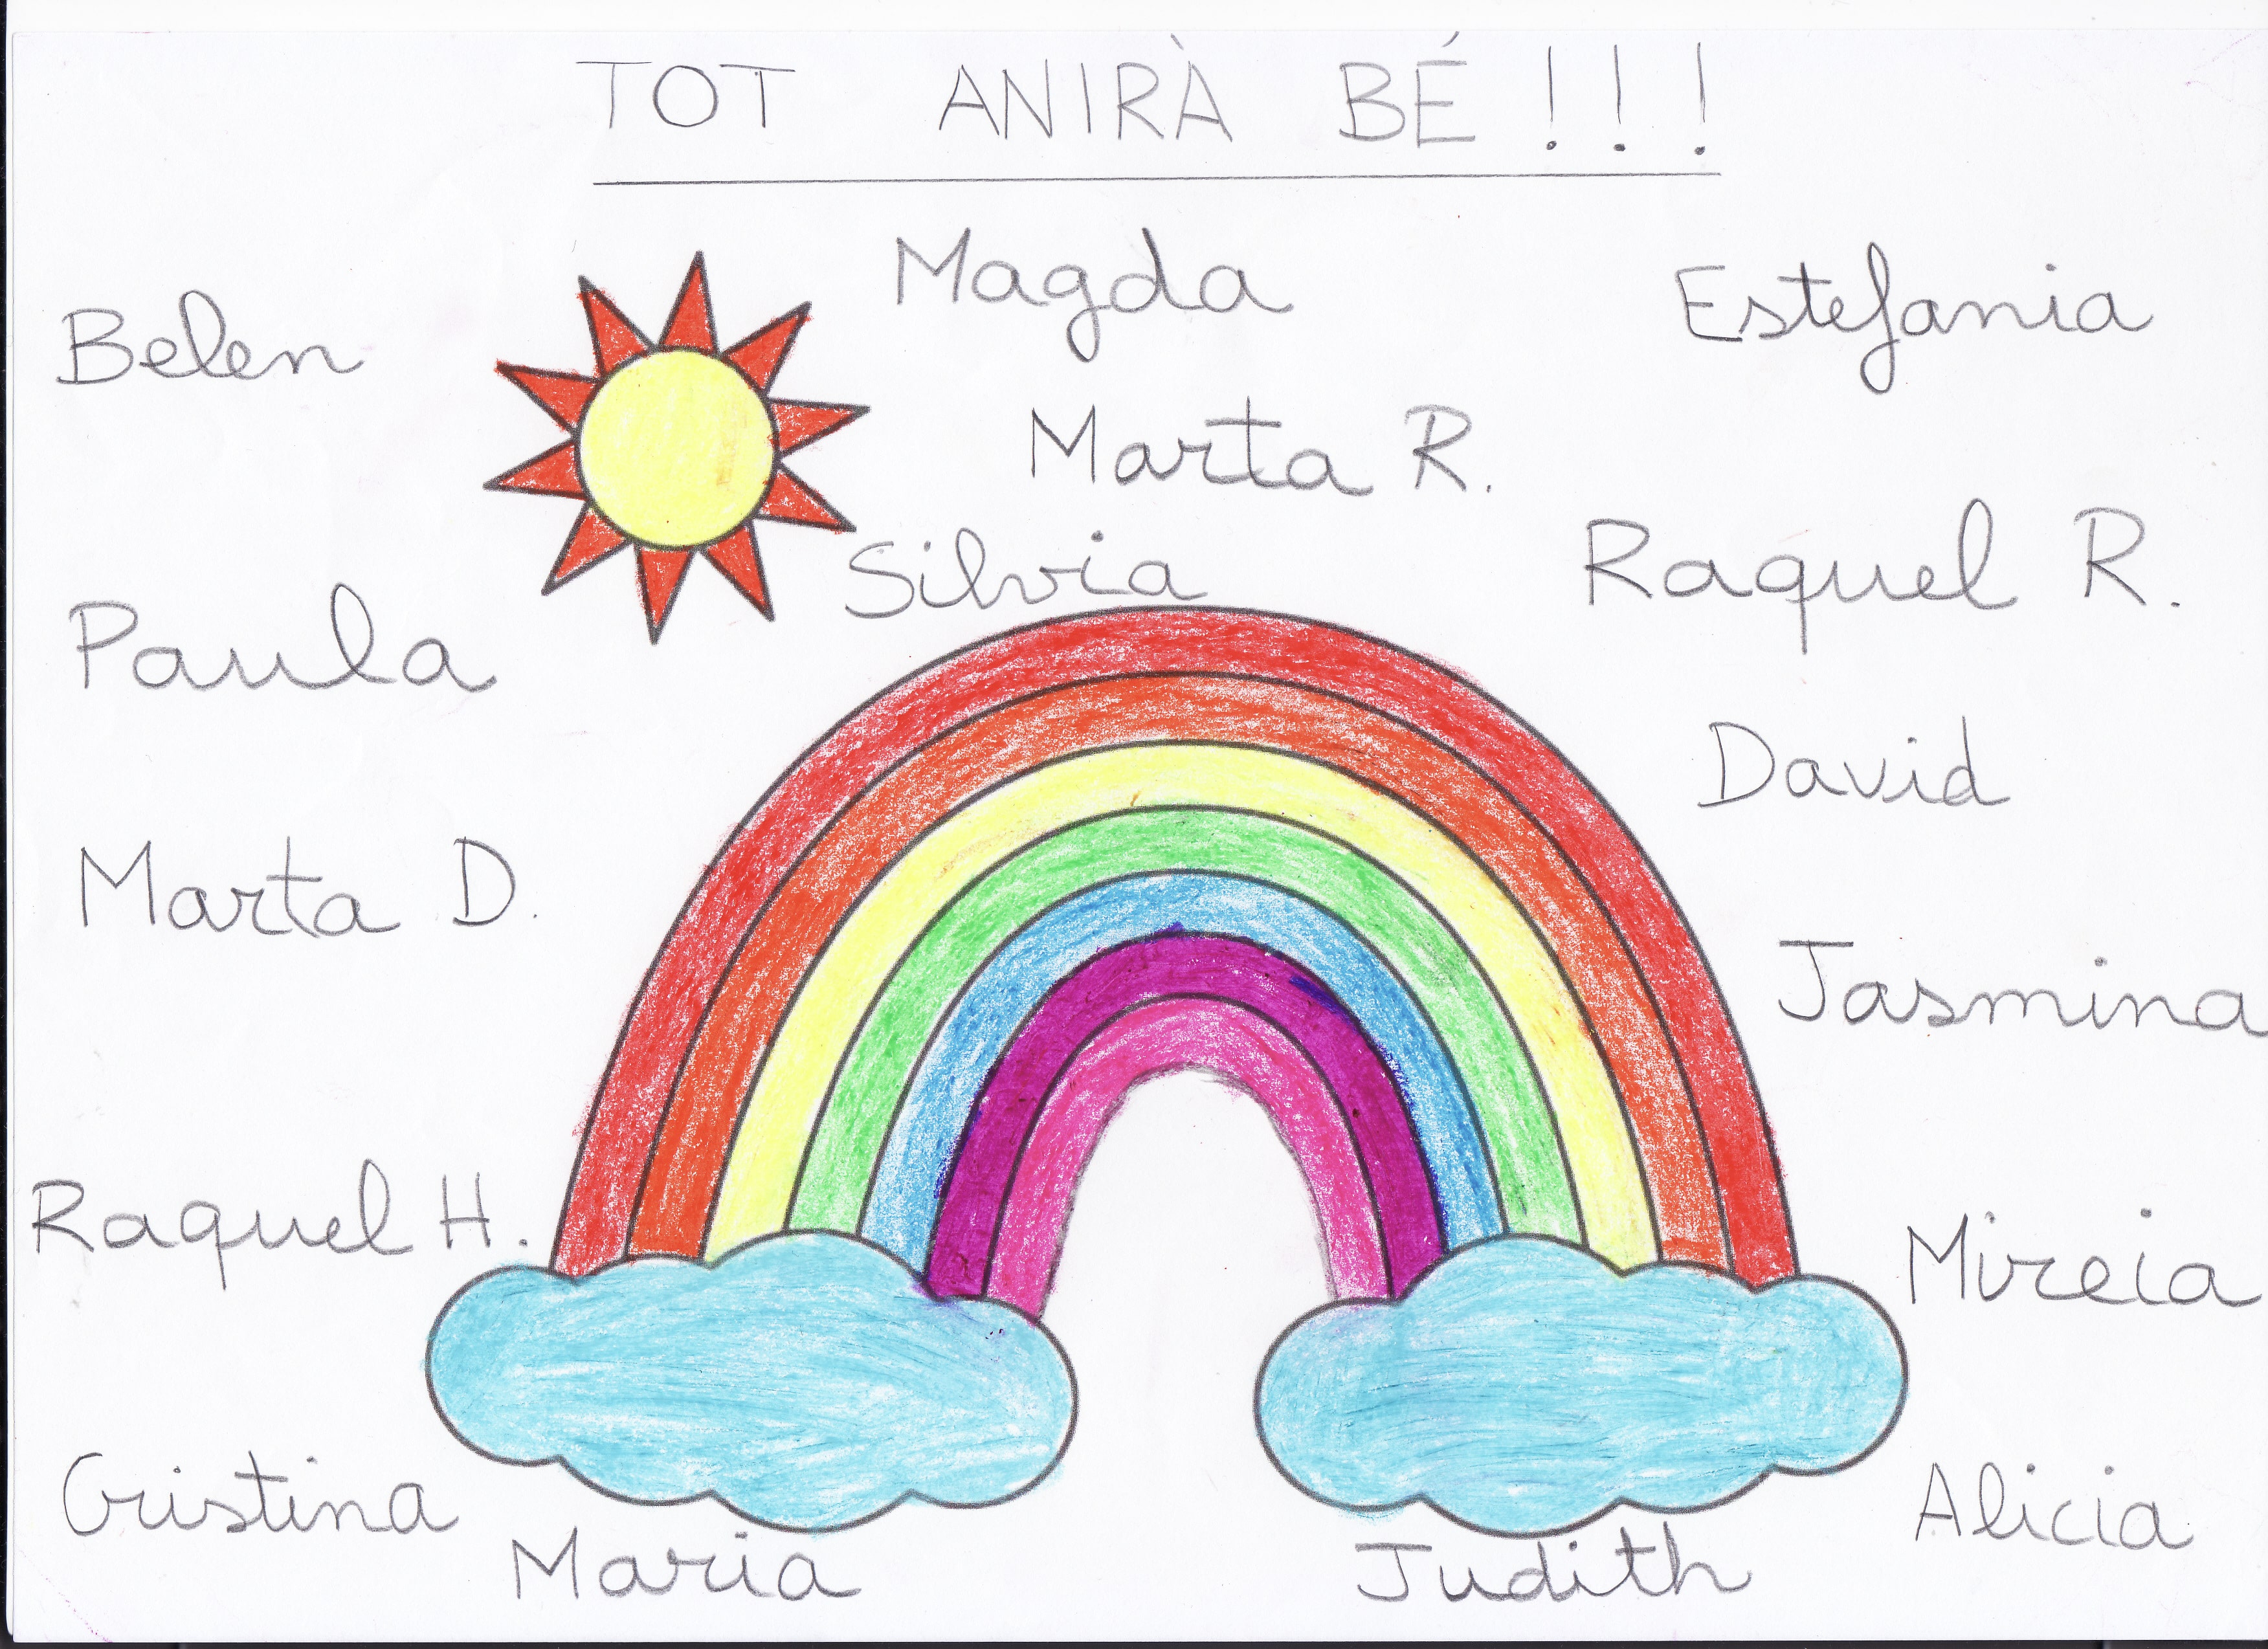 TOT ANIRÀ BÉ!!!
Magda
Estefania
Belen
Marta R.
Silvia
Raquel R.
Paula
David
Marta D.
Jasmina
Raquel H.
Mireia
Cristina
Alicia
Maria
Judith